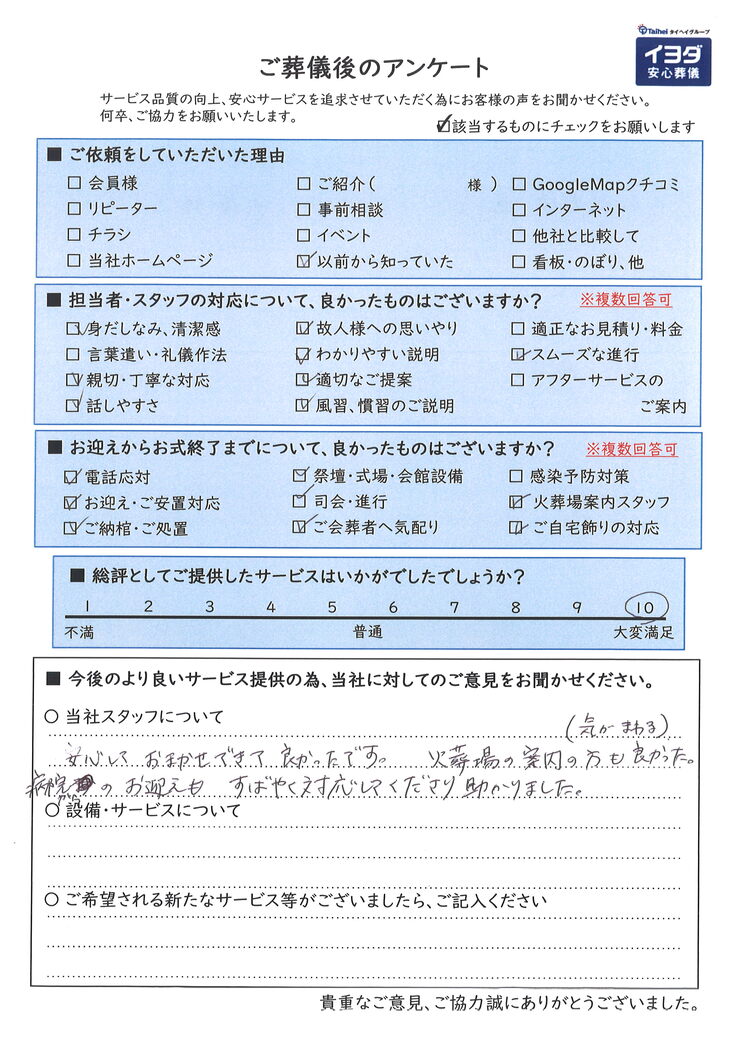 Taihei タイヘイグループ
イヨダ
安心葬儀
ご葬儀後のアンケート
サービス品質の向上、安心サービスを追求させていただく為にお客様の声をお聞かせください。
何卒、ご協力をお願いいたします。
☑該当するものにチェックをお願いします
■ ご依頼をしていただいた理由
□ 会員様 □ ご紹介( 様 ) □ GoogleMapクチコミ
□ リピーター □ 事前相談 □ インターネット
□ チラシ □ イベント □ 他社と比較して
□ 当社ホームページ ☑ 以前から知っていた □ 看板・のぼり、他
■ 担当者・スタッフの対応について、良かったものはございますか? ※複数回答可
☑ 身だしなみ、清潔感 ☑ 故人様への思いやり □ 適正なお見積り・料金
□ 言葉遣い・礼儀作法 ☑ わかりやすい説明 ☑ スムーズな進行
☑ 親切・丁寧な対応 ☑ 適切なご提案 □ アフターサービスの
☑ 話しやすさ ☑ 風習、慣習のご説明 ご案内
■ お迎えからお式終了までについて、良かったものはございますか? ※複数回答可
☑ 電話応対 ☑ 祭壇・式場・会館設備 □ 感染予防対策
☑ お迎え・ご安置対応 ☑ 司会・進行 ☑ 火葬場案内スタッフ
☑ ご納棺・ご処置 ☑ ご会葬者へ気配り ☑ ご自宅飾りの対応
■ 総評としてご提供したサービスはいかがでしたでしょうか?
1 2 3 4 5 6 7 8 9 10
不満 普通 大変満足
■ 今後のより良いサービス提供の為、当社に対してのご意見をお聞かせください。
○ 当社スタッフについて
(気がまわる)
安心して おまかせできて 良かったです。 火葬場の案内の方も良かった。
病院 のお迎えも すばやく対応してくださり助かりました。
○ 設備・サービスについて
○ ご希望される新たなサービス等がございましたら、ご記入ください
貴重なご意見、ご協力誠にありがとうございました。